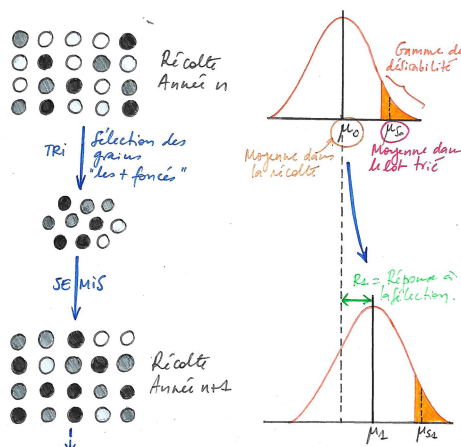 Récolte
Année n
TRi
Sélection des
grains
"les + foncés"
SEMiS
Récolte
Année n+1
Gamme de
désirabilité
μ₀
μS₀
Moyenne dans
la récolte
Moyenne dans
le lot trié
R₁ = Réponse à
la sélection.
μ₁
μS₁